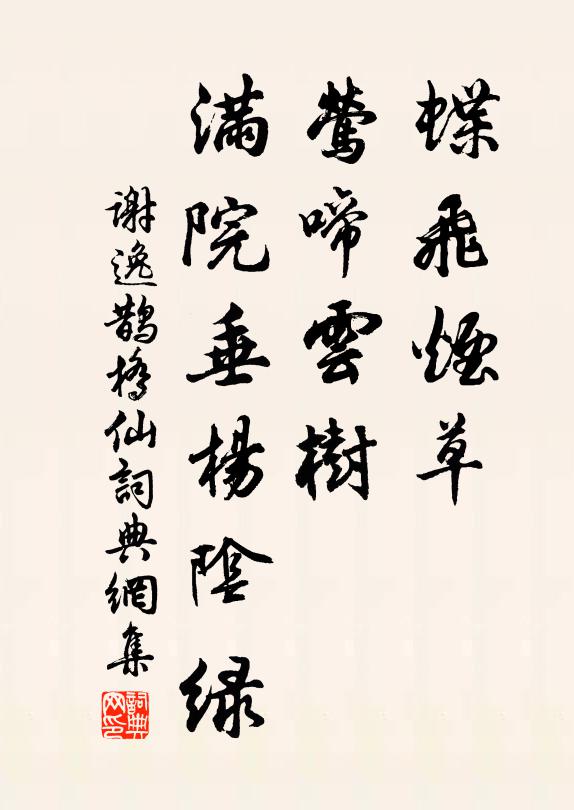 蝶飛煙草
鶯啼雲樹
滿院垂楊陰綠
謝逸鵲橋仙詞典網集
詞典网印